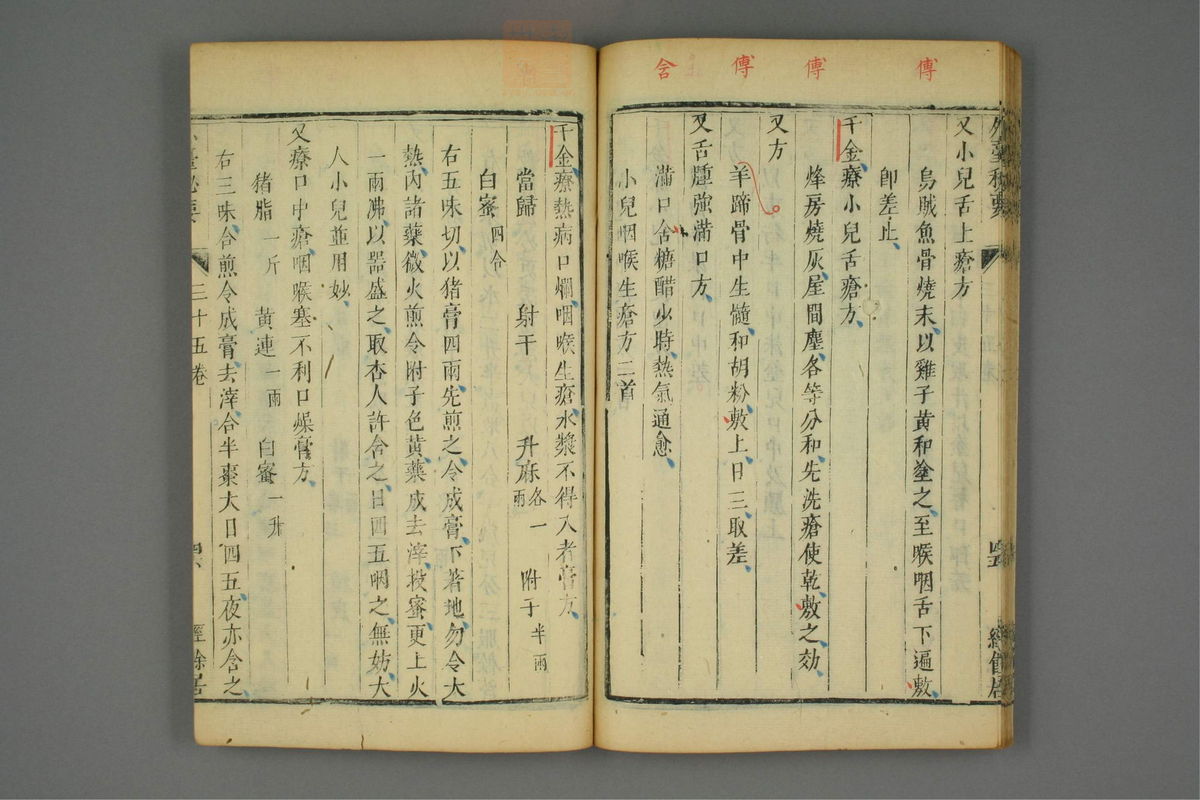 傅
傅
傅
含
外臺秘要
四五
經餘居
又小兒舌上瘡方
烏賊魚骨燒末以雞子黃和塗之至喉咽舌下遍敷
卽差止
千金療小兒舌瘡方
烽房燒灰屋間塵各等分和先洗瘡使乾敷之効
又方
羊蹄骨中生髓和胡粉敷上日三取差
又舌腫强滿口方
滿口含糖醋少時熱氣通愈
小兒咽喉生瘡方二首
千金療熱病口爛咽喉生瘡水漿不得入者膏方
當歸 射干 升麻各一兩 附子半兩
白蜜四合
右五味切以猪膏四兩先煎之令成膏下著地勿令大
熱內諸藥微火煎令附子色黃藥成去滓投蜜更上火
一兩沸以器盛之取杏人許含之日四五咽之無妨大
人小兒並用妙
又療口中瘡咽喉塞不利口燥膏方
猪脂一斤 黃連一兩 白蜜一升
右三味合煎令成膏去滓含半棗大日四五夜亦含之
臺秘要
三十五卷
四六
經餘居